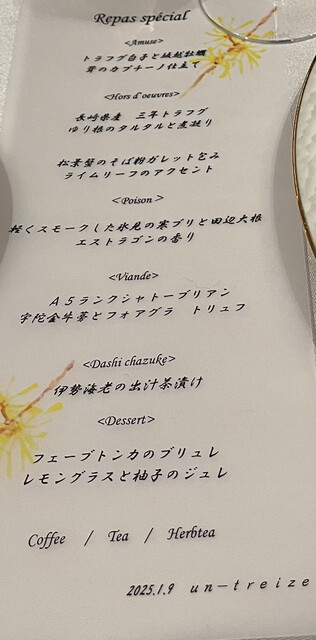 Repas spécial
<Amuse>
トラフグ白子と城越牡蠣
茸のカプチーノ仕立て
<Hors d'oeuvres>
長崎県産　三年トラフグ
ゆり根のタルタルと煮凝り
松葉蟹のそば粉ガレット包み
ライムリーフのアクセント
<Poison>
軽くスモークした氷見の寒ブリと田辺大根
エストラゴンの香り
<Viande>
A5ランクシャトーブリアン
宇陀金牛蒡とフォアグラ　トリュフ
<Dashi chazuke>
伊勢海老の出汁茶漬け
<Dessert>
フェーブトンカのブリュレ
レモングラスと柚子のジュレ
Coffee / Tea / Herbtea
2025.1.9 un-treize